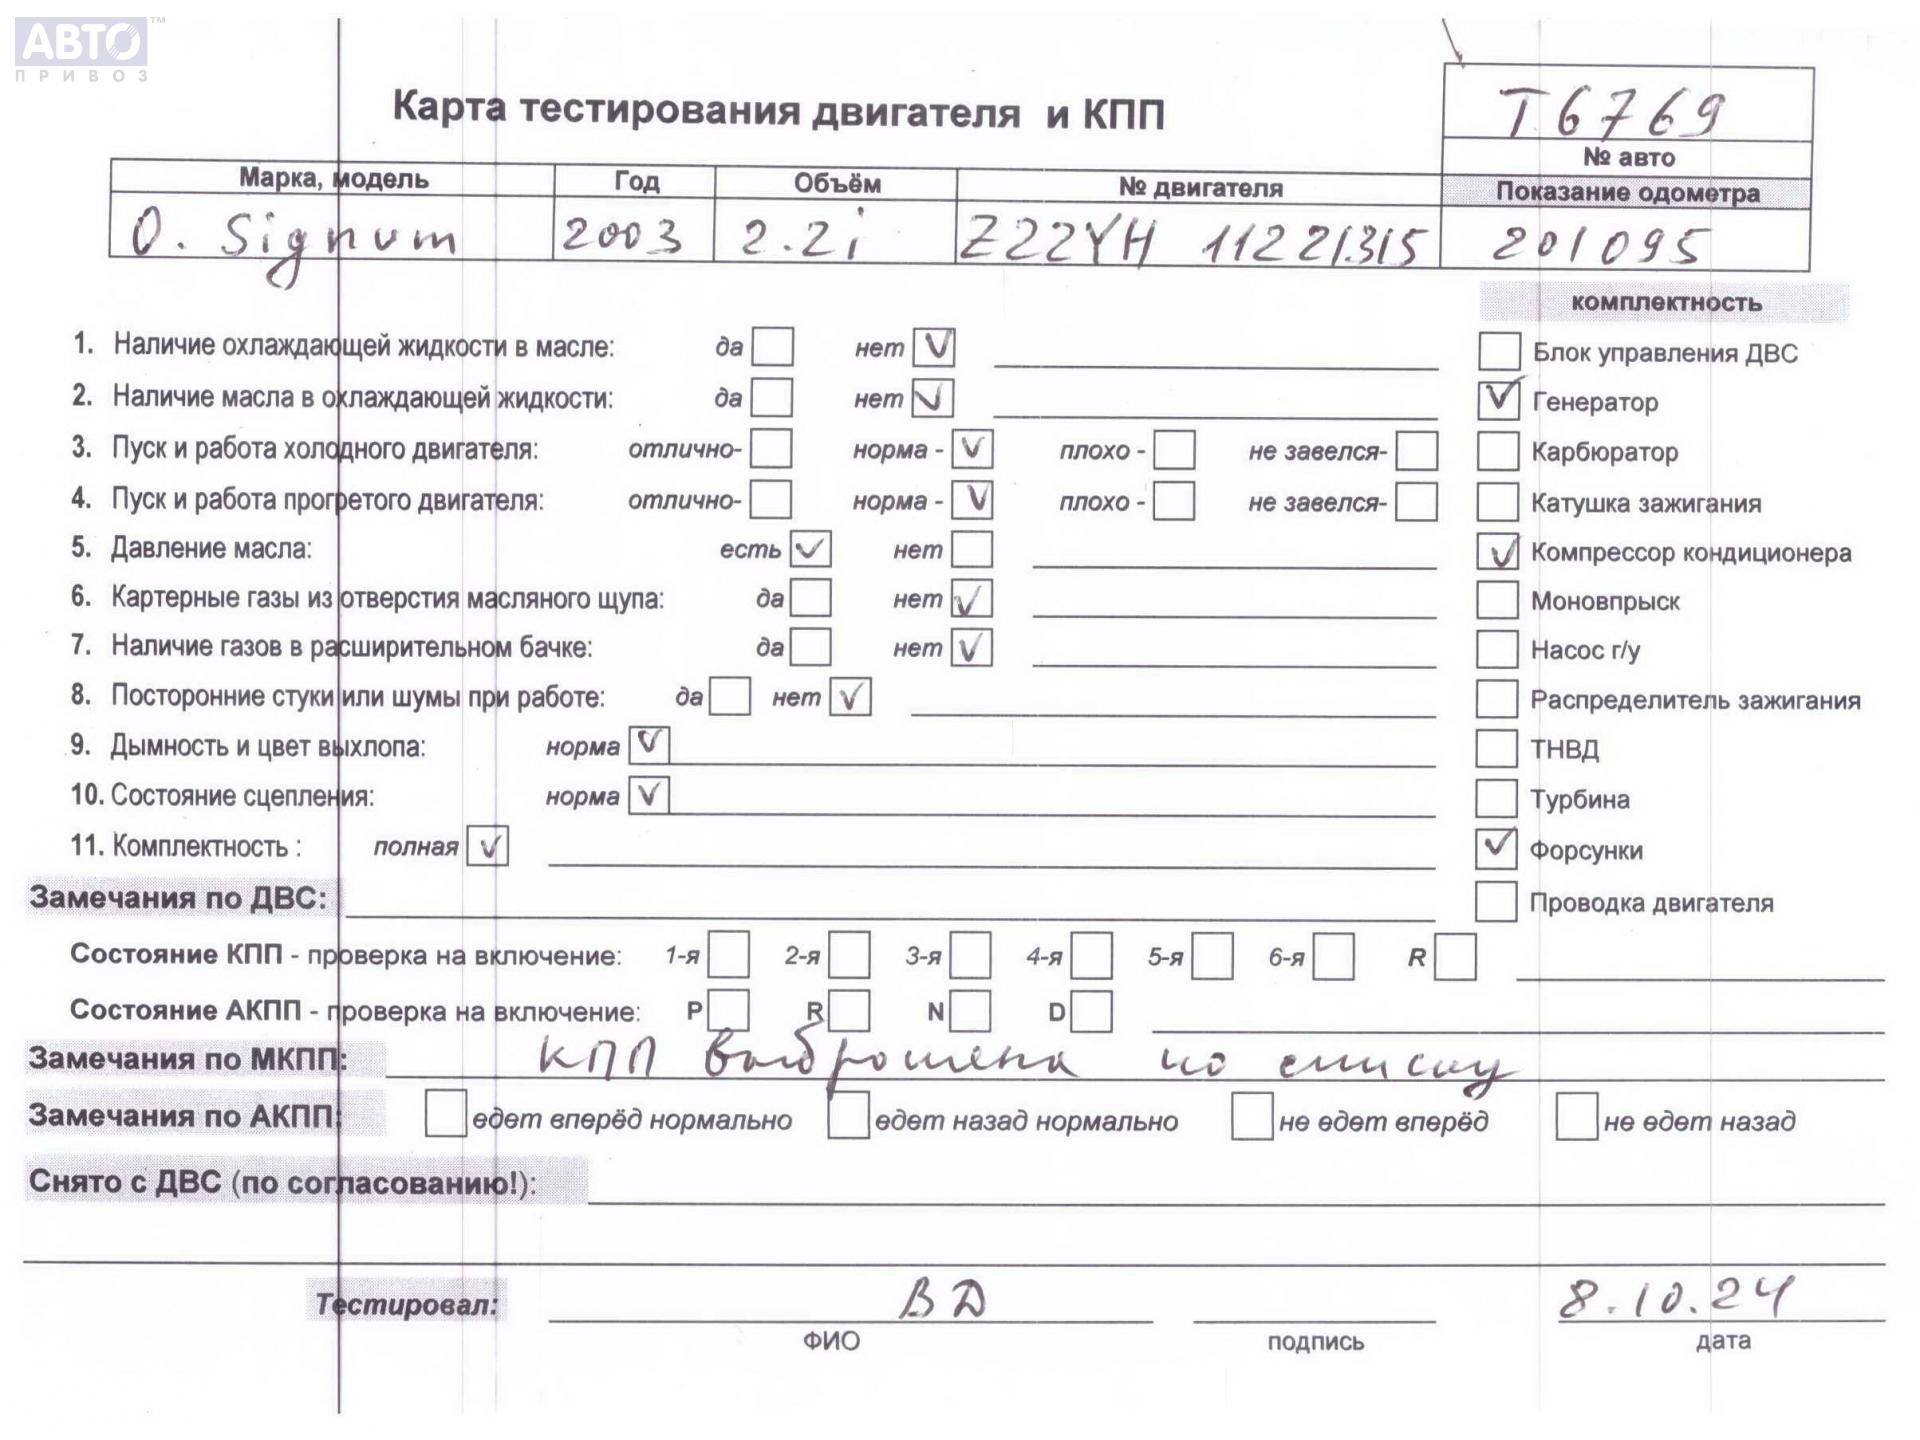 АВТО™
ПРИВОЗ
Т6769
Карта тестирования двигателя и КПП
№ авто
Марка, модель Год Объём № двигателя Показание одометра
O. Signum 2003 2.2i Z22YH 11221315 201095
комплектность
1. Наличие охлаждающей жидкости в масле: да нет ✓ Блок управления ДВС
2. Наличие масла в охлаждающей жидкости: да нет ✓ ✓ Генератор
3. Пуск и работа холодного двигателя: отлично- норма - ✓ плохо - не завелся- Карбюратор
4. Пуск и работа прогретого двигателя: отлично- норма - ✓ плохо - не завелся- Катушка зажигания
5. Давление масла: есть ✓ нет ✓ Компрессор кондиционера
6. Картерные газы из отверстия масляного щупа: да нет ✓ Моновпрыск
7. Наличие газов в расширительном бачке: да нет ✓ Насос г/у
8. Посторонние стуки или шумы при работе: да нет ✓ Распределитель зажигания
9. Дымность и цвет выхлопа: норма ✓ ТНВД
10. Состояние сцепления: норма ✓ Турбина
11. Комплектность : полная ✓ ✓ Форсунки
Замечания по ДВС: Проводка двигателя
Состояние КПП - проверка на включение: 1-я 2-я 3-я 4-я 5-я 6-я R
Состояние АКПП - проверка на включение: P R N D
Замечания по МКПП: КПП выброшена по списку
Замечания по АКПП: едет вперёд нормально едет назад нормально не едет вперёд не едет назад
Снято с ДВС (по согласованию!):
Тестировал: ВД 8.10.24
ФИО подпись дата